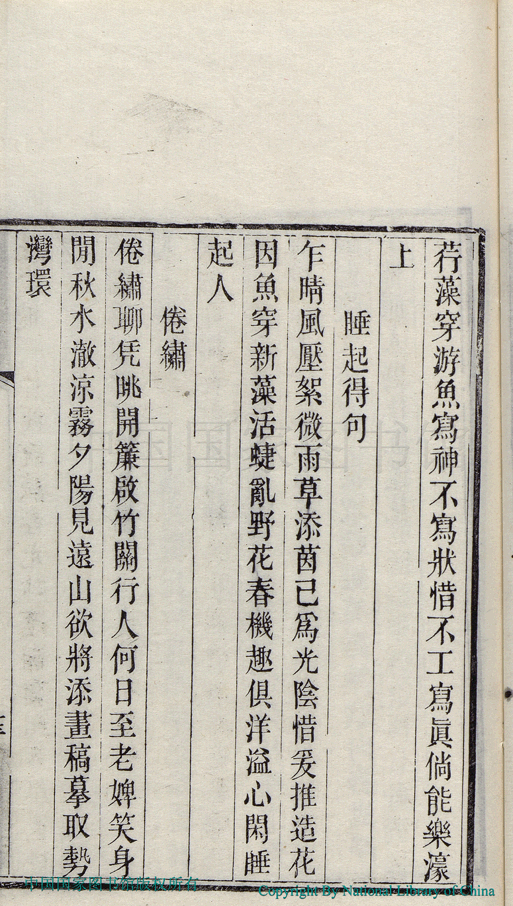 荇藻穿游魚寫神不寫狀惜不工寫眞倘能樂濠
上
睡起得句
乍晴風壓絮微雨草添茵已爲光陰惜爰推造花
因魚穿新藻活蜨亂野花春機趣俱洋溢心閑睡
起人
倦繡
倦繡聊凭眺開簾啟竹關行人何日至老婢笑身
閒秋水澈涼霧夕陽見遠山欲將添畫稿摹取勢
灣環
中国国家图书馆版权所有
Copyright By National Library of China